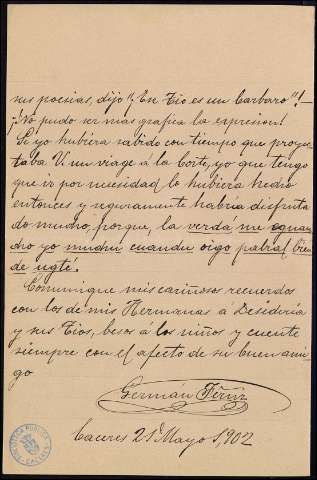 sus poesias, dijo "¡Ese Tio es un barbaro"!—
¡No pudo ser mas grafica la expresion!
Si yo hubiera sabido con tiempo que proyec
taba V. un viage á la Corte, yo que tengo
que ir por necesidad lo hubiera hecho
entonces y seguramente habria disfruta
do mucho, porque, la verdá me
cho yo muchu cuandu oigo palral bien
de ugté.
Comunique mis cariñosos recuerdos
con los de mis Hermanas á Desideria
y sus Tios, besos á los niños y cuente
siempre con el afecto de su buen ami
go
Germán
Caceres 21 Mayo 1,902
BIBLIOTECA PUBLICA
CACERES